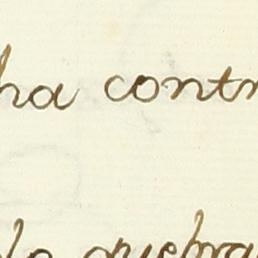 ha contr
lo quebra